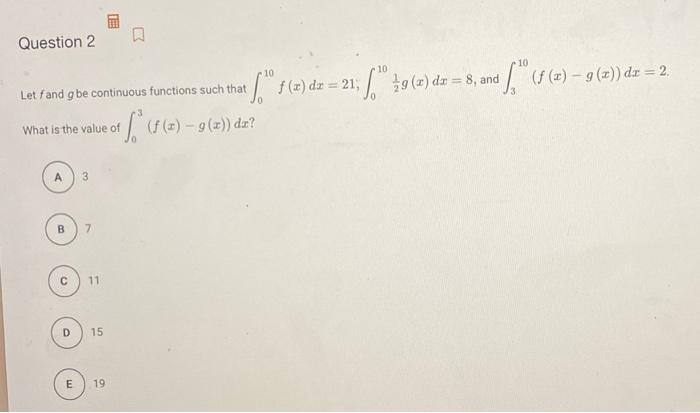 Question 2
Let f and g be continuous functions such that ∫₀¹⁰ f(x) dx = 21, ∫₀¹⁰ ½g(x) dx = 8, and ∫₃¹⁰ (f(x) − g(x)) dx = 2.
What is the value of ∫₀³ (f(x) − g(x)) dx?
A 3
B 7
C 11
D 15
E 19